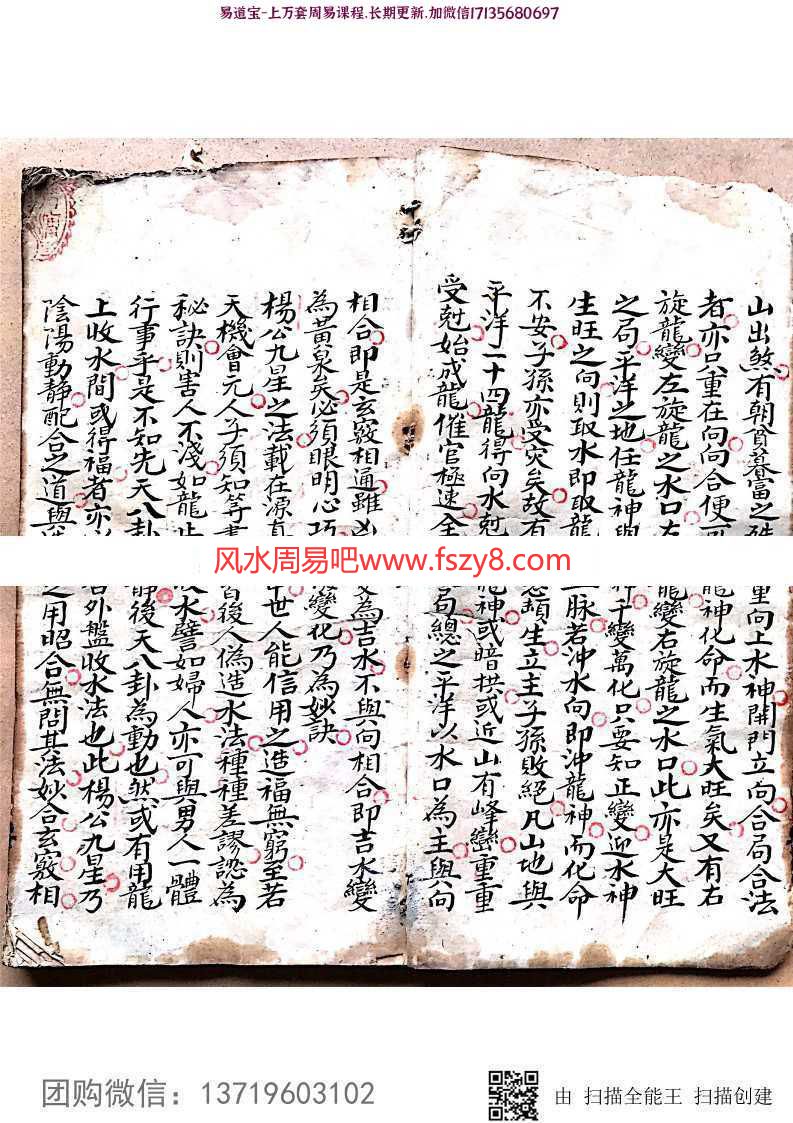 易道宝-上万套周易课程.长期更新.加微信17135680697
山出煞有朝貧暮富之 重向上水神開門立向合局合法
者亦只重在向向合便 龍神化命而生氣大旺矣又有右
旋龍變左旋龍之水口左 龍變右旋龍之水口此亦是大旺
之局平洋之地任龍神與 千變萬化只要知正變迎水神
生旺之向則取水即取龍 脉若沖水向即沖龍神而化命
不安子孫亦受灾矣故有 生立主子孫敗絕凡山地與
平洋二十四龍得向水尅 龍神或暗拱或近山有峰巒重重
受尅始成龍催官極速全 局總之平洋以水口為主與向
相合即是玄竅相通雖凶 變為吉水不與向相合即吉水變
為黃泉矣必須眼明心巧 變化乃為妙訣
楊公九星之法載在源真 世人能信用之造福無窮至若
天機會元人子須知等書 皆後人偽造水法種種差謬認為
秘訣則害人不淺如龍 水譬如婦人亦可與男人一體
行事乎是不如先天八卦 靜後天八卦為動也然或有用龍
上收水間或得福者亦 外盤收水法也此楊公九星乃
陰陽動靜配合之道與 之用昭合無間其法妙合玄竅相
风水周易吧www.fszy8.com
团购微信：13719603102
由 扫描全能王 扫描创建